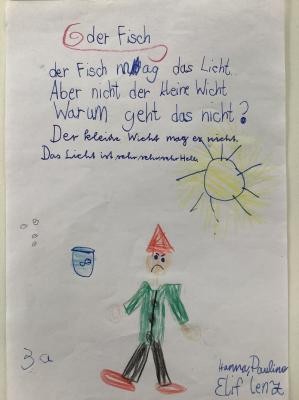 der Fisch
der Fisch mag das Licht.
Aber nicht der kleine Wicht
Warum geht das nicht?
Der kleine Wicht mag es nicht.
Das Licht ist sehr, sehr, sehr Hell.
3a
Hanna, Pauline
Elif Lenz